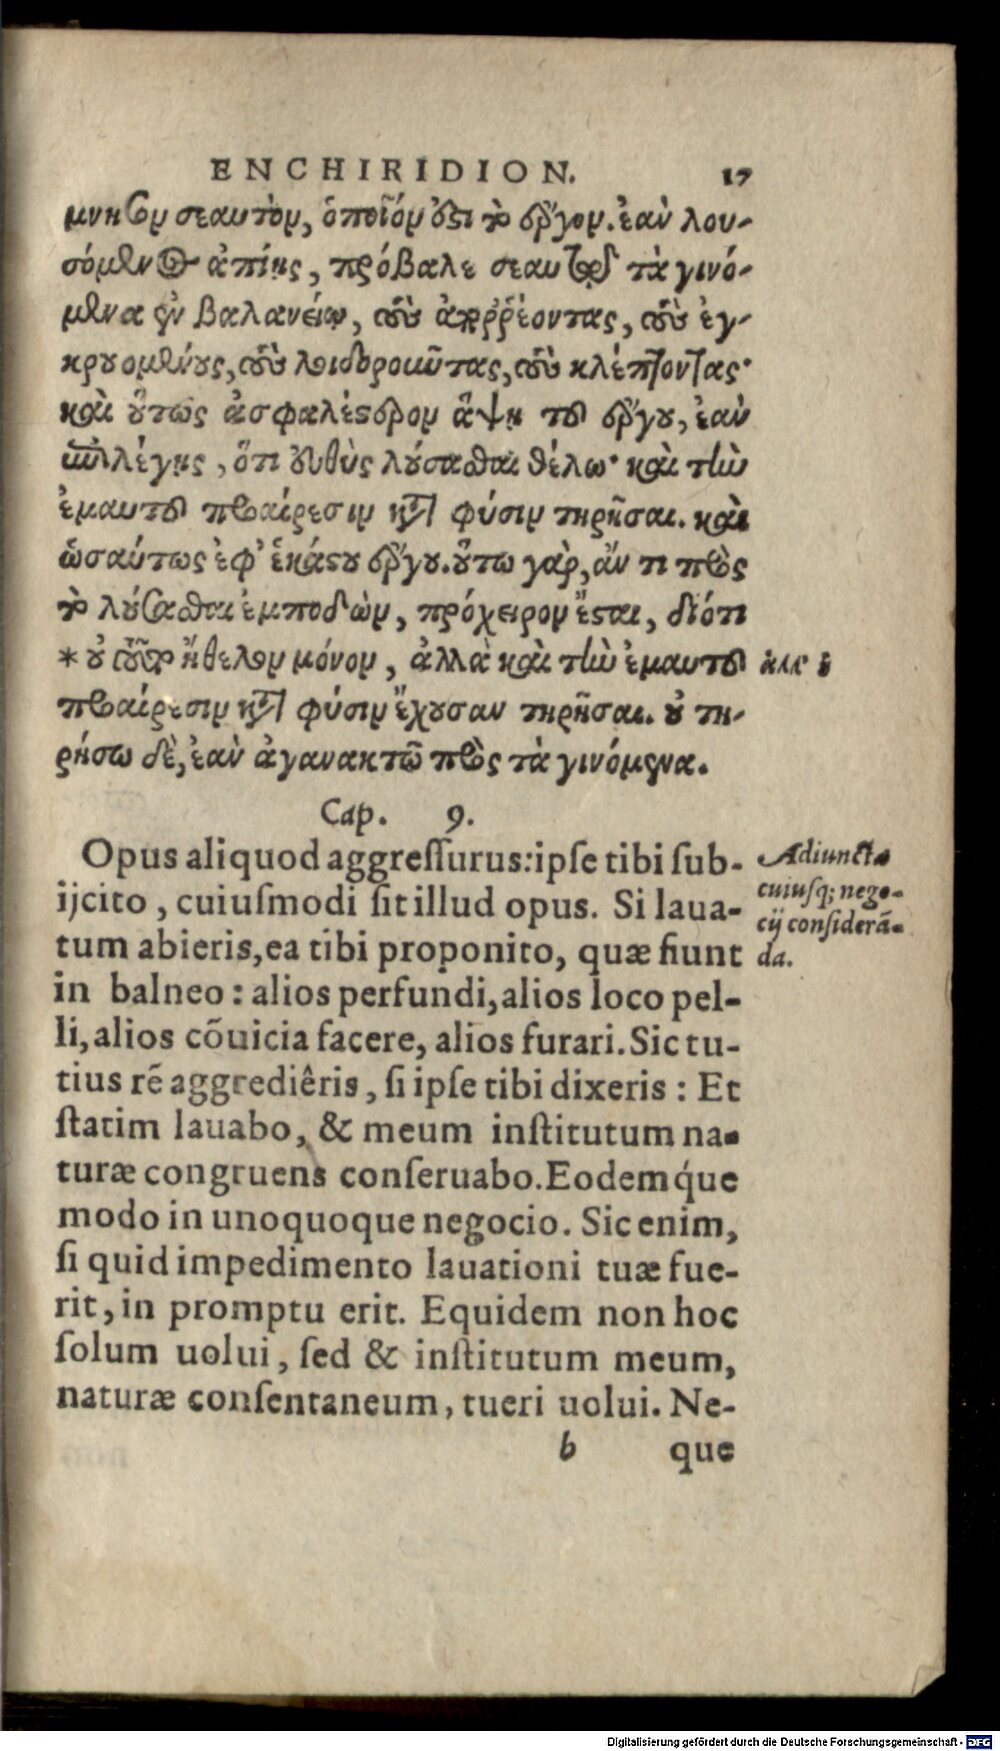 ENCHIRIDION. 17
μνησον σεαυτὸν, ὁποῖόν ἐστι τὸ ἔργον. ἐὰν λου-
σόμενος ἀπίῃς, πρόβαλε σεαυτῷ τὰ γινό-
μενα ἐν βαλανείῳ, τοὺς ἀπορρέοντας, τοὺς ἐγ-
κρουομένους, τοὺς λοιδοροῦντας, τοὺς κλέπτοντας·
καὶ οὕτως ἀσφαλέστερον ἅψῃ τοῦ ἔργου, ἐὰν
ἐπιλέγῃς, ὅτι εὐθὺς λούσασθαι θέλω· καὶ τὴν
ἐμαυτοῦ προαίρεσιν κατὰ φύσιν τηρῆσαι. καὶ
ὡσαύτως ἐφ' ἑκάστου ἔργου. οὕτω γὰρ, ἄν τι πρὸς
τὸ λούσασθαι ἐμποδὼν, πρόχειρον ἔσται, διότι
* οὐ τοῦτο ἤθελον μόνον, ἀλλὰ καὶ τὴν ἐμαυτοῦ
προαίρεσιν κατὰ φύσιν ἔχουσαν τηρῆσαι. οὐ τη-
ρήσω δὲ, ἐὰν ἀγανακτῶ πρὸς τὰ γινόμενα.
Cap. 9.
Opus aliquod aggressurus: ipse tibi sub-
ijcito, cuiusmodi sit illud opus. Si laua-
tum abieris, ea tibi proponito, quæ fiunt
in balneo: alios perfundi, alios loco pel-
li, alios cõuicia facere, alios furari. Sic tu-
tius rẽ aggrediêris, si ipse tibi dixeris: Et
statim lauabo, & meum institutum na-
turæ congruens conseruabo. Eodemq́ue
modo in unoquoque negocio. Sic enim,
si quid impedimento lauationi tuæ fue-
rit, in promptu erit. Equidem non hoc
solum uolui, sed & institutum meum,
naturæ consentaneum, tueri uolui. Ne-
b que
Adiuncta
cuiusq; nego-
cij considerã-
da.
Digitalisierung gefördert durch die Deutsche Forschungsgemeinschaft - DFG